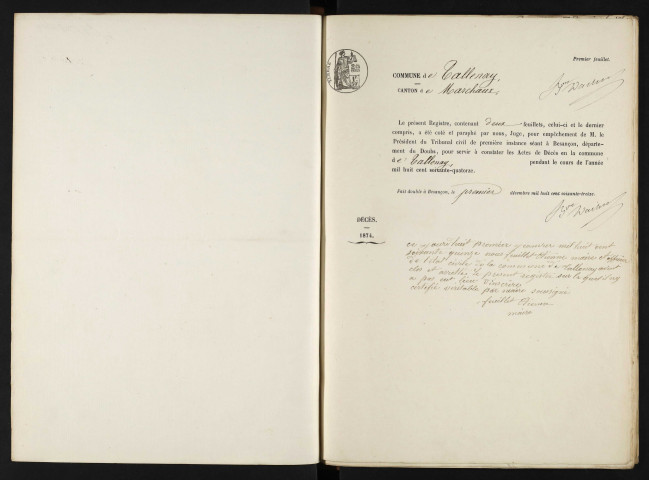 Premier feuillet.
COMMUNE de Tallenay,
CANTON de Marchaux,
Le présent Registre, contenant deux feuillets, celui-ci et le dernier
compris, a été coté et paraphé par nous, Juge, pour empêchement de M. le
Président du Tribunal civil de première instance séant à Besançon, départe-
ment du Doubs, pour servir à constater les Actes de Décès en la commune
de Tallenay, pendant le cours de l'année
mil huit cent soixante-quatorze.
Fait double à Besançon, le premier décembre mil huit cent soixante-treize.
DÉCÈS.
1874.
ce jourd'huit premier janvier mil huit cent
soixante quinze nous feuillet maire et officier
de l'état civile de la commune de Tallenay avont
clos et arretté le present registre sur le quel il ny
a pas eut lieu d'inscrire
certifié veritable par nous soussigné
feuillet
maire